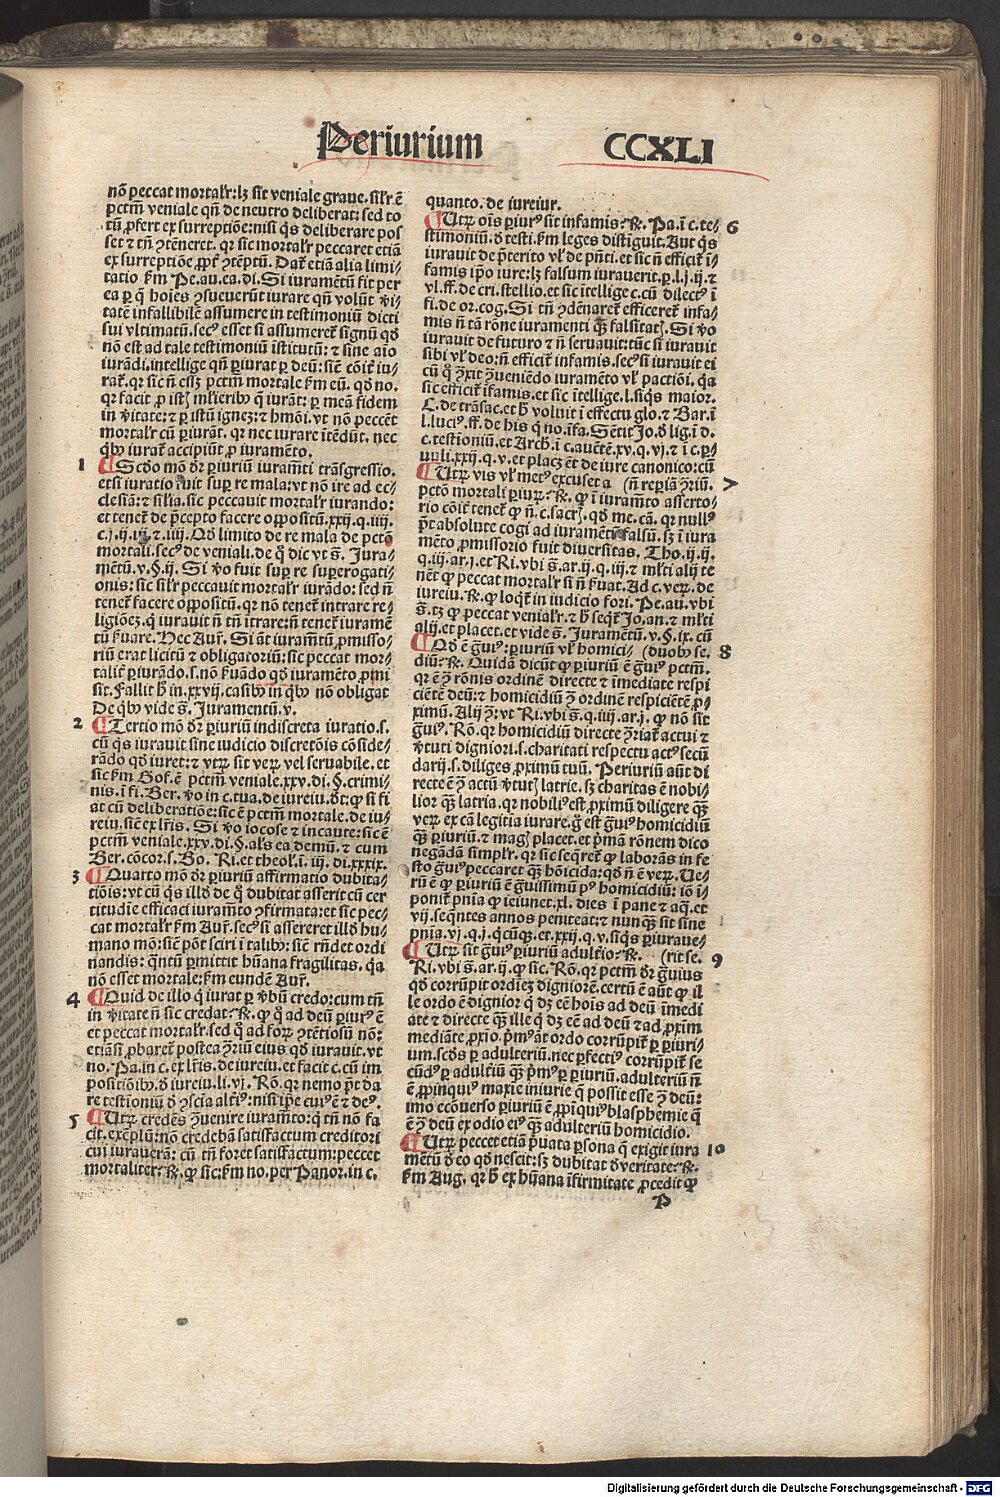 Periurium CCXLI
nõ peccat mortalr̃: lꝫ sit veniale graue. sil'r ẽ
pctm̃ veniale qñ de neutro deliberat: sed to
tũ ꝓfert ex surreptiõe: nisi q̃s deliberare pos
set ⁊ tñ ↄ̃teneret. qr sic mortalr̃ peccaret etiã
ex surreptiõe ꝓpt̃ ↄ̃tẽptũ. Dat̃ etiã alia limi⸗
tatio ẜm Pe. au. ea. di. Si iuramẽtũ fit per
ea ꝑ q̃ hoĩes ↄ̃sueuerũt iurare qñ volũt v̓i⸗
tatẽ infallibilẽ assumere in testimoniũ dicti
sui vltimatũ. secꝰ esset si assumeret̃ signũ qđ
nõ est ad tale testimoniũ ĩstitutũ: ⁊ sine aĩo
iurãdi. intellige qñ ꝑiurat ꝑ deũ: sicut cõit̃ iu⸗
rat̃. qr sic ñ esset pctm̃ mortale ẜm eũ. qđ no.
qr facit ꝓ istis ml'ieribꝰ q̃ iurãt: ꝑ meã fidem
in v̓itate: ⁊ ꝑ istũ ignẽ: ⁊ hmõi. vt nõ peccẽt
mortalr̃ cũ ꝑiurãt. qr nec iurare ĩtẽdũt. nec
q̃bꝰ iurat̃ accipiũt ꝓ iuramẽto.
1 ¶ Scđo mõ dr̃ ꝑiuriũ iuram̃ti trãsgressio.
etsi iuratio fuit suꝑ re mala: vt nõ ire ad ec⸗
clesiã: ⁊ sil'ia. sic peccauit mortalr̃ iurando:
et tenet̃ de p̃cepto facere oppositũ. xxij. q. iiij.
c. j. ij. iij. ⁊. iiij. Qđ limito de re mala de pctõ
mortali. secꝰ de veniali. de q̃ dic vt s̃. Jura⸗
mẽtũ. v. §. ij. Si v̓o fuit suꝑ re suꝑerogati⸗
onis: sic sil'r peccauit mortalr̃ iurãdo: sed ñ
tenet̃ facere oppositũ. qr nõ tenet̃ intrare re⸗
ligiõez. q̃ iurauit ñ tñ ĩtrare: ñ tenet̃ iuramẽ
tũ ẜuare. Hec Aur̃. Si aũt iuram̃tũ ꝓmisso⸗
riũ erat licitũ ⁊ obligatoriũ: sic peccat mor⸗
talit̃ ꝑiurãdo. s. nõ ẜuãdo qđ iuramẽto ꝓmi
sit. Fallit h̃ in. xxvij. casibꝰ in q̃bꝰ nõ obligat
De q̃bꝰ vide s̃. Juramentũ. v.
2 ¶ Tertio mõ dr̃ ꝑiuriũ indiscreta iuratio. s.
cũ q̃s iurauit sine iudicio discretõis cõside⸗
rãdo qđ iuret: ⁊ vtꝝ sit veꝝ vel seruabile. et
sic ẜm Gof. ẽ pctm̃ veniale. xxv. di. §. crimi⸗
nis. ĩ fi. Ber. v̓o in c. tua. de iureiu. dt̃: ꝙ si fi
at cũ deliberatiõe: sic ẽ pctm̃ mortale. de iu⸗
reiu. sicut ex lr̃is. Si v̓o iocose ⁊ incaute: sic ẽ
pctm̃ veniale. xxv. di. §. al's ea demũ. ⁊ cum
Ber. cõcor. s. Bo. Ri. et theol'. ĩ. iij. di. xxxix.
3 ¶ Quarto mõ dr̃ ꝑiuriũ affirmatio dubita⸗
tiõis: vt cũ q̃s illđ de q̃ dubitat asserit cũ cer
titudĩe efficaci iuram̃to ↄ̃firmata: et sic pec⸗
cat mortalr̃ ẜm Aur̃. secꝰ si assereret illđ hu⸗
mano mõ: sicut põt sciri ĩ talibꝰ: sicut rñdet ordi
nandis: q̃ntũ ꝑmittit hũana fragilitas. q̃a
nõ esset mortale: ẜm eundẽ Aur̃.
4 ¶ Quid de illo q̃ iurat ꝑ v̓bũ credo: cum tñ
in v̓itate ñ sic credat: R̃. ꝙ q̃ ad deũ ꝑiurꝰ ẽ
et peccat mortalr̃. sed q̃ ad forũ ↄ̃tẽtiosũ nõ:
etiãsi ꝓbaret̃ postea ↄ̃riũ eius qđ iurauit. vt
no. Pa. in c. ex lr̃is. de iureiu. et facit c. cũ im
positiõibꝰ. đ iureiu. li. vj. Rõ. qr nemo põt da
re testoniũ đ ↄ̃scia alt̃iꝰ: nisi ip̃e cuiꝰ ẽ ⁊ deꝰ.
5 ¶ Utꝝ credẽs ↄ̃uenire iuram̃to: q̃ tñ nõ fa
cit. exẽplũ: nõ credebã satisfactum creditori
cui iurauerã: cũ tñ foret satisfactum: peccet
mortaliter: R̃. ꝙ sic. ẜm no. per Panor. in c.
quanto. de iureiur.
¶ Utꝝ oĩs ꝑiurꝰ sit infamis: R̃. Pa. ĩ c. te⸗ 6
stimoniũ. đ testi. ẜm leges distiguit. Aut q̃s
iurauit de p̃terito vl' de p̃ñti. et sic ñ efficit̃ ĩ⸗
famis ip̃o iure: lꝫ falsum iurauerit. ꝑ. l. j. ij. ⁊
vl. ff. de cri. stellio. et sic ĩtellige c. cũ dilectꝰ ĩ
fi. de or. cog. Si tñ ↄ̃dẽnaret̃ efficeret̃ infa⸗
mis ñ tã rõne iuramenti q̃ꝫ falsitatꝭ. Si v̓o
iurauit de futuro ⁊ ñ seruauit: tũc si iurauit
sibi vl' deo: ñ efficit̃ infamis. secꝰ si iurauit ei
cũ q̃ ↄ̃xit ↄ̃ueniẽdo iuramẽto vl' pactiõi. q̃a
sic efficit̃ ĩfamis. et sic ĩtellige. l. siq̃s maior.
C. de trãsac. et h̃ voluit ĩ effectu glo. ⁊ Bar. ĩ
l. luciꝰ. ff. de his q̃ no. ĩfa. Sẽtit Jo. đ lig. ĩ d.
c. testioniũ. et Arch. ĩ c. auctẽ. xv. q. vj. ⁊ ĩ c. ꝑ⸗
uuli. xxij. q. v. et placꝫ ẽt de iure canonico: cũ
¶ Utꝝ vis vl' metꝰ excuset a (ñ reꝑiã ↄ̃riũ. 7
pctõ mortali ꝑiurꝝ: R̃. ꝙ ĩ iuram̃to asserto⸗
rio cõit̃ tenet̃ ꝙ ñ. c. sacrꝭ. qđ me. cã. qr nullꝰ
põt absolute cogi ad iuramẽtũ falsũ. sꝫ ĩ iura
mẽto ꝓmissorio fuit diuersitas. Tho. ij. ij.
q. iij. ar. j. et Ri. vbi s̃. ar. ij. q. iij. ⁊ ml'ti alij te
nẽt ꝙ peccat mortalr̃ si ñ ẜuat. Ad c. veꝝ. de
iureiu. R̃. ꝙ loqt̃ in iudicio fori. Pe. au. vbi
s̃. tꝫ ꝙ peccat venialr̃. ⁊ h̃ seqt̃ Jo. an. ⁊ ml'ti
alij. et placet. et vide s̃. Juramẽtũ. v. §. ix. cũ
¶ Qđ ẽ g̃uiꝰ: ꝑiuriũ vl' homici⸗ (duobꝰ se. 8
diũ: R̃. Quidã dicũt ꝙ ꝑiuriũ ẽ g̃uiꝰ pctm̃.
qr ẽ ↄ̃ rõnis ordinẽ directe ⁊ ĩmediate respi
ciẽtẽ deũ: ⁊ homicidiũ ↄ̃ ordinẽ respiciẽtẽ ꝓ⸗
ximũ. Alij ↄ̃: vt Ri. vbi s̃. q. iiij. ar. j. ꝙ nõ sit
g̃uiꝰ. Rõ. qr homicidiũ directe ↄ̃riat̃ actui ⁊
v̓tuti digniori. s. charitati respectu actꝰ secũ
darij. s. diliges ꝓximũ tuũ. Periuriũ aũt di
recte ẽ ↄ̃ actũ v̓tutꝭ latrie. sꝫ charitas ẽ nobi⸗
lior q̃ꝫ latria. qr nobiliꝰ est ꝓximũ diligere q̃ꝫ
veꝝ ex cã legitia iurare. g̃ est g̃uiꝰ homicidiũ
q̃ꝫ ꝑiuriũ. ⁊ magꝭ placet. et p̃mã rõnem dico
negãdã simpl'r. qr sic seqret̃ ꝙ laborãs in fe
sto g̃uiꝰ peccaret q̃ꝫ hõicida: qđ ñ ẽ veꝝ. Ve⸗
rũ ẽ ꝙ ꝑiuriũ ẽ g̃uissimũ pꝰ homicidiũ: iõ ĩ⸗
ponit̃ pnĩa ꝙ ieiunet. xl. dies ĩ pane ⁊ aq̃. et
vij. seq̃ntes annos peniteat: ⁊ nunq̃ꝫ sit sine
pnĩa. vj. q. j. q̃cũqꝫ. et. xxij. q. v. siq̃s ꝑiuraue⸗
¶ Utꝝ sit g̃uiꝰ ꝑiuriũ adult̃io: R̃. (rit se. 9
Ri. vbi s̃. ar. ij. ꝙ sic. Rõ. qr pctm̃ dr̃ g̃uius
qđ corrũpit ordiez digniorẽ. certũ ẽ aũt ꝙ il
le ordo ẽ dignior q̃ dꝫ eẽ hoĩs ad deũ ĩmedi
ate ⁊ directe q̃ꝫ ille q̃ dꝫ eẽ ad deũ ⁊ ad ꝓxim
mediãte ꝓxio. p̃mꝰ aũt ordo corrũpit̃ ꝑ ꝑiuri⸗
um. scđs ꝑ adulteriũ. nec ꝑfectiꝰ corrũpit̃ se
cũdꝰ ꝑ adult̃iũ q̃ꝫ p̃mꝰ ꝑ ꝑiuriũ. adulteriũ ñ
ẽ ꝓpinquiꝰ maxie iniurie q̃ possit esse ↄ̃ deũ:
imo ecõuerso ꝑiuriũ ẽ ꝓpĩquiꝰ blasphemie q̃
ẽ ↄ̃ deũ ex odio eiꝰ q̃ꝫ adulteriũ homicidio.
¶ Utꝝ peccet etiã p̃uata ꝑsona q̃ exigit iura 10
mẽtũ đ eo qđ nescit: sꝫ dubitat đ veritate: R̃.
ẜm Aug. qr h̃ ex hũana ĩfirmitate ꝓcedit ꝙ
P
Digitalisierung gefördert durch die Deutsche Forschungsgemeinschaft - DFG